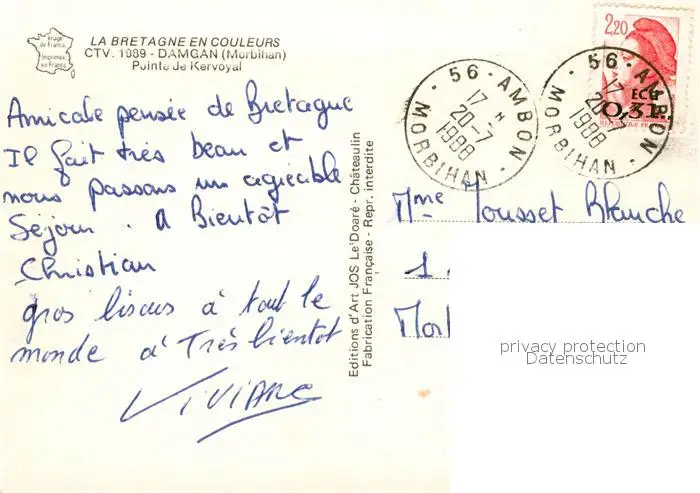 Image
de France
Imprimée
en France
LA BRETAGNE EN COULEURS
CTV. 1989 - DAMGAN (Morbihan)
Pointe de Kervoyal
Amicale pensée de Bretagne
Il fait très beau et
nous passons un agréable
Séjour. A Bientôt
Christian
gros bisous à tout le
monde à Très bientôt
VIVIANE
Editions d'Art JOS Le Doaré - Châteaulin
Fabrication Française - Repr. interdite
56 - AMBON
17 H
20-7
1988
MORBIHAN
56 - AMBON
17
20-7
1988
MORBIHAN
2,20
ECU
0,31
Mme Mousset Blanche
1
privacy protection
Datenschutz